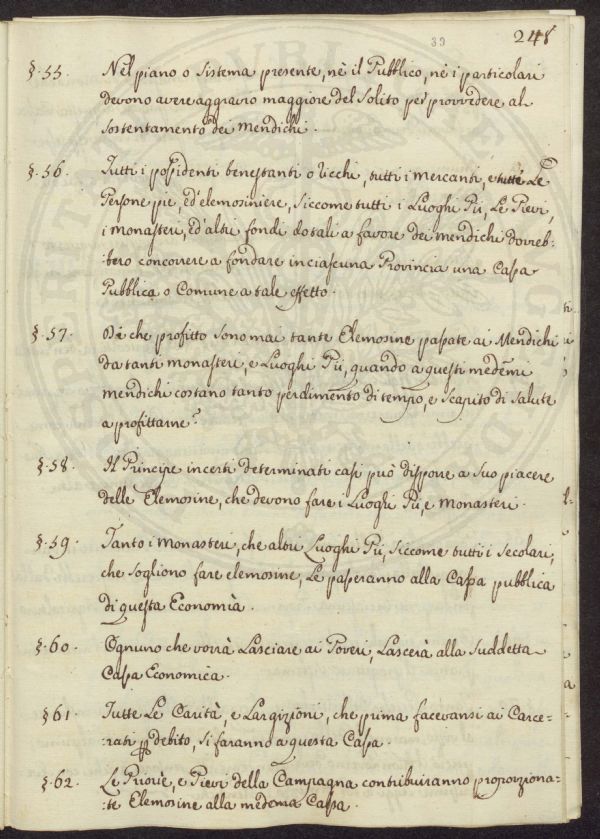 39 248
§.55. Nel piano o Sistema presente, nè il Pubblico, nè i particolari
devono avere aggravio maggiore del Solito per provvedere al
Sostentamento dei Mendichi.
§.56. Tutti i possidenti benestanti o ricchi, tutti i mercanti, e tutte Le
Persone pie, ed elemosiniere, Siccome tutti i Luoghi Pii, Le Pievi,
i monasteri, ed altri fondi dotali a favore dei mendichi dovreb-
:bero concorrere a fondare in ciascuna Provincia una Cassa
Pubblica o Comune a tale effetto.
§.57. Di che profitto sono mai tante Elemosine passate ai Mendichi
da tanti monasteri, e Luoghi Pii, quando a questi medemi
mendichi costano tanto perdimento di tempo, e Scapito di Salute
a profittarne?
§.58. Il Principe in certi determinati casi può disporre a Suo piacere
delle Elemosine, che devono fare i Luoghi Pii, e Monasteri.
§.59. Tanto i Monasteri, che altri Luoghi Pii, Siccome tutti i Secolari,
che Sogliono fare elemosine, Le passeranno alla Cassa pubblica
di questa Economìa.
§.60. Ognuno che vorrà Lasciare ai Poveri, Lascerà alla Suddetta
Cassa Economica.
§61. Tutte Le Carità, e Largizioni, che prima facevansi ai Carce-
:rati p debito, Si faranno a questa Cassa.
§.62. Le Priorìe, e Pievi della Campagna contribuiranno proporziona:
:te Elemosine alla medema Cassa.